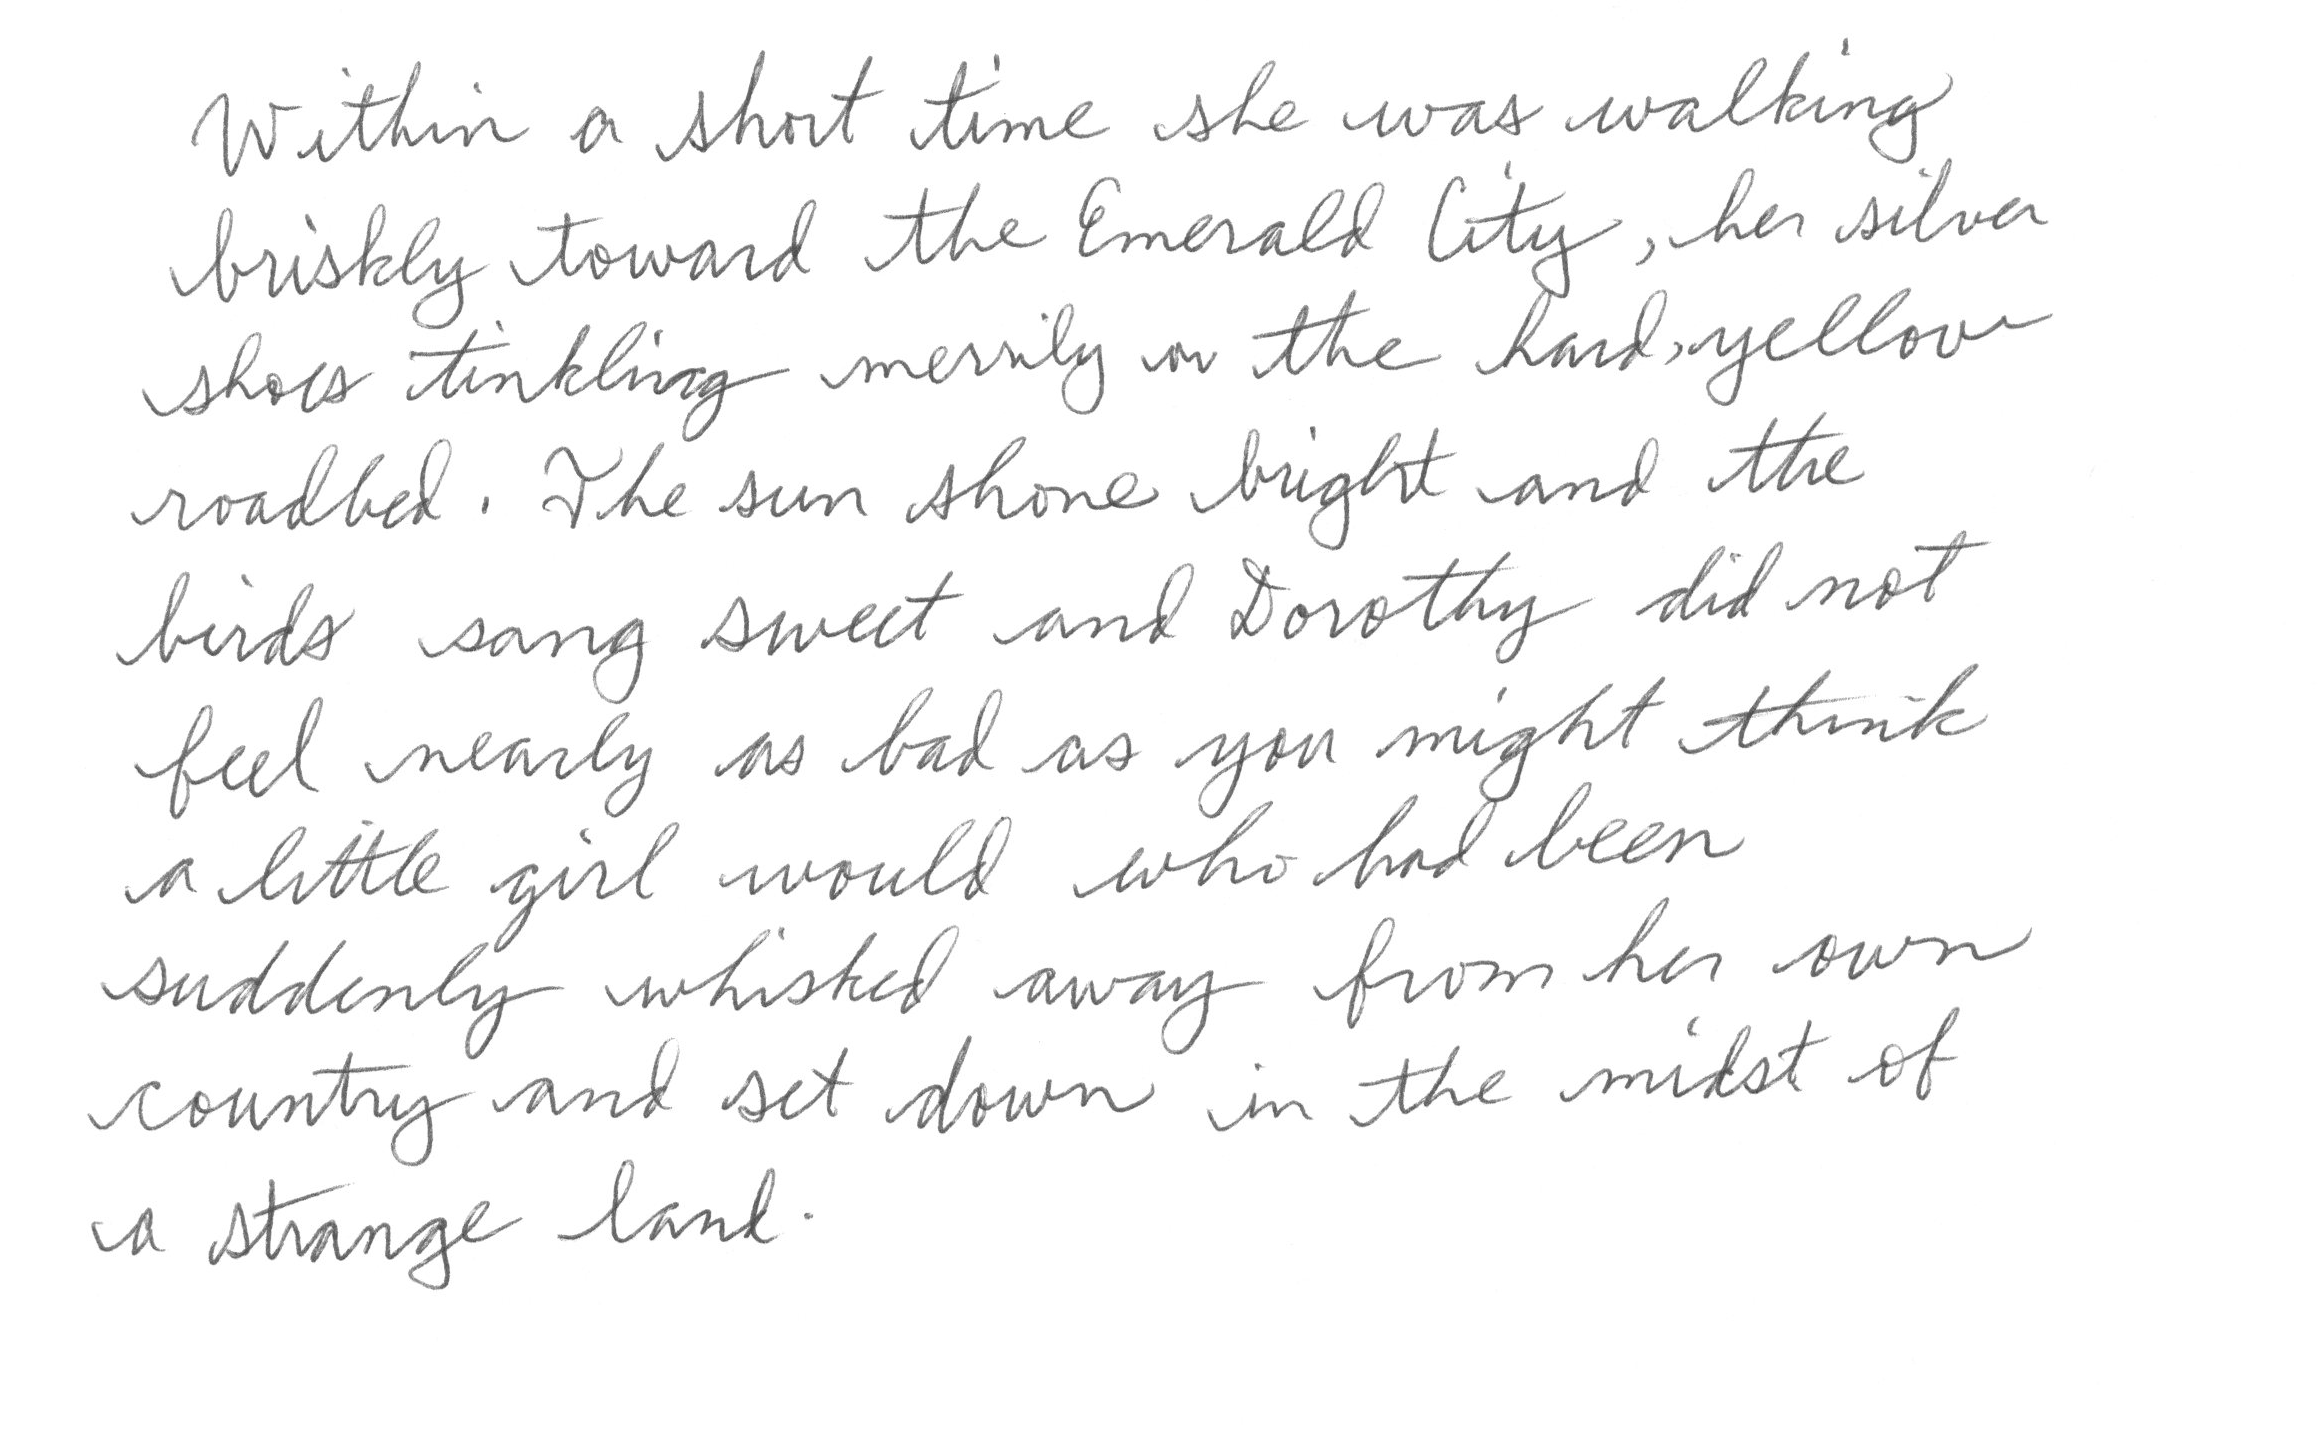 Within a short time she was walking
briskly toward the Emerald City, her silver
shoes tinkling merrily on the hard, yellow
roadbed. The sun shone bright and the
birds sang sweet and Dorothy did not
feel nearly as bad as you might think
a little girl would who had been
suddenly whisked away from her own
country and set down in the midst of
a strange land.